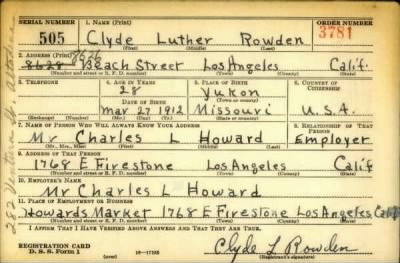 SERIAL NUMBER 1. NAME (Print) ORDER NUMBER
505 Clyde Luther Rowden 3781
(First) (Middle) (Last)
2. ADDRESS (Print) 8626
8628 Beach Street Los Angeles Calif.
(Number and street or R. F. D. number) (Town) (County) (State)
3. TELEPHONE 4. AGE IN YEARS 5. PLACE OF BIRTH 6. COUNTRY OF CITIZENSHIP
28 Yukon
DATE OF BIRTH (Town or county)
Mar 27 1912 Missouri U.S.A.
(Exchange) (Number) (Mo.) (Day) (Yr.) (State or country)
7. NAME OF PERSON WHO WILL ALWAYS KNOW YOUR ADDRESS 8. RELATIONSHIP OF THAT PERSON
Mr. Charles L Howard Employer
(Mr., Mrs., Miss) (First) (Middle) (Last)
9. ADDRESS OF THAT PERSON
1768 E Firestone Los Angeles Calif
(Number and street or R. F. D. number) (Town) (County) (State)
10. EMPLOYER'S NAME
Mr Charles L Howard
11. PLACE OF EMPLOYMENT OR BUSINESS
Howards Market 1768 E Firestone Los Angeles Calif
(Number and street or R. F. D. number) (Town) (County) (State)
I AFFIRM THAT I HAVE VERIFIED ABOVE ANSWERS AND THAT THEY ARE TRUE.
REGISTRATION CARD
D. S. S. Form 1 (over) 16—17105 Clyde L Rowden
(Registrant's signature)